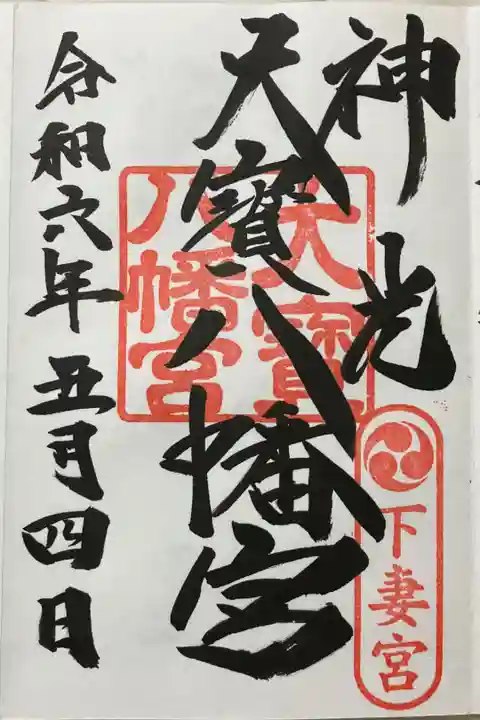 神光
下妻宮
大寶八幡宮
大寶
八幡宮
令和六年五月四日